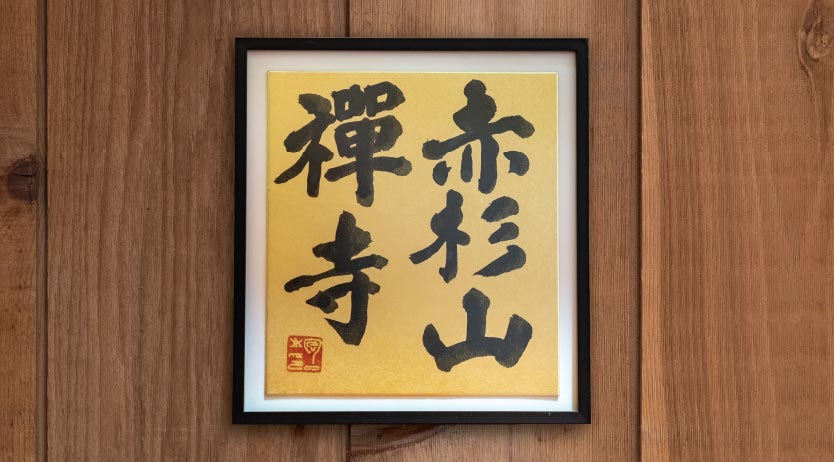 赤杉山
禪寺